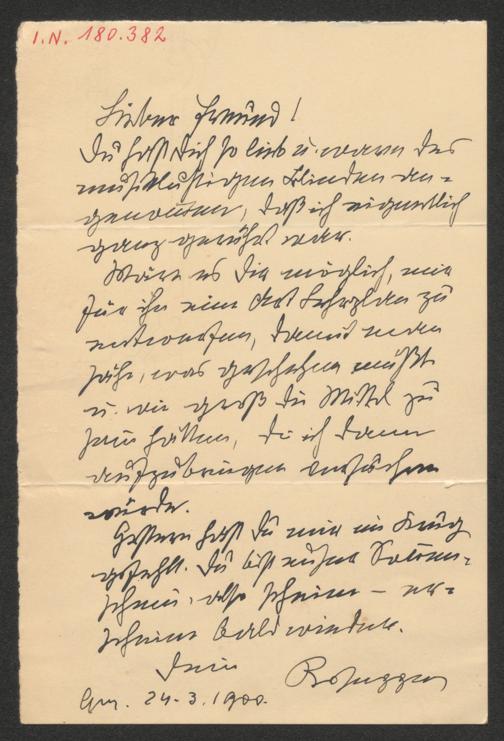 I.N. 180.382
Lieber Freund!
Du hast Dich so lieb u. warm des
musiklustigen Blinden an-
genommen, daß ich eigentlich
ganz gerührt war.
Wäre es Dir möglich, mir
für ihn eine Art Lehrplan zu
entwerfen, damit man
sähe, was geschehen müßte
u. wie groß die Mittel zu
sein hätten, die ich dann
aufzubringen versuchen
würde.
Gestern hast Du mir im Krug
gefehlt. Du bist unser Sonnen-
schein, also scheine – er-
scheine bald wieder.
Dein Rosegger
Graz. 24.3.1900.